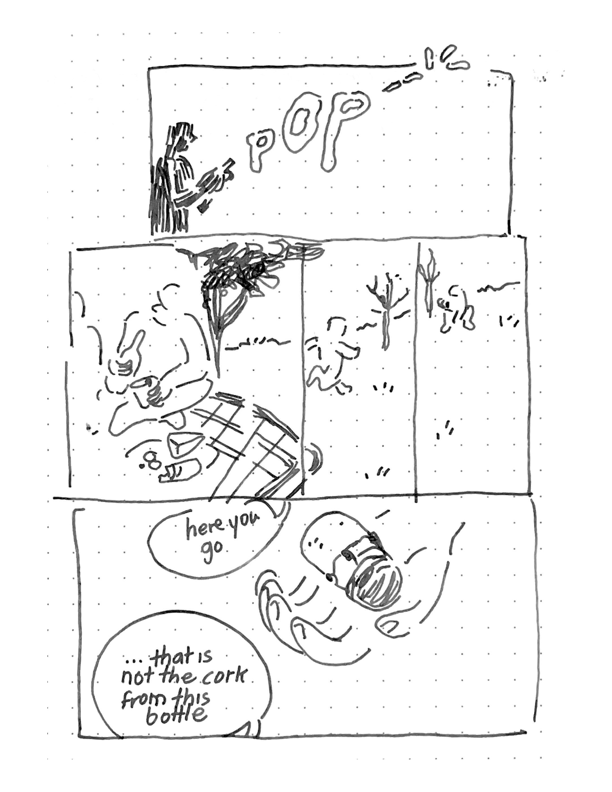 pOP
here you
go
... that is
not the cork
from this
bottle